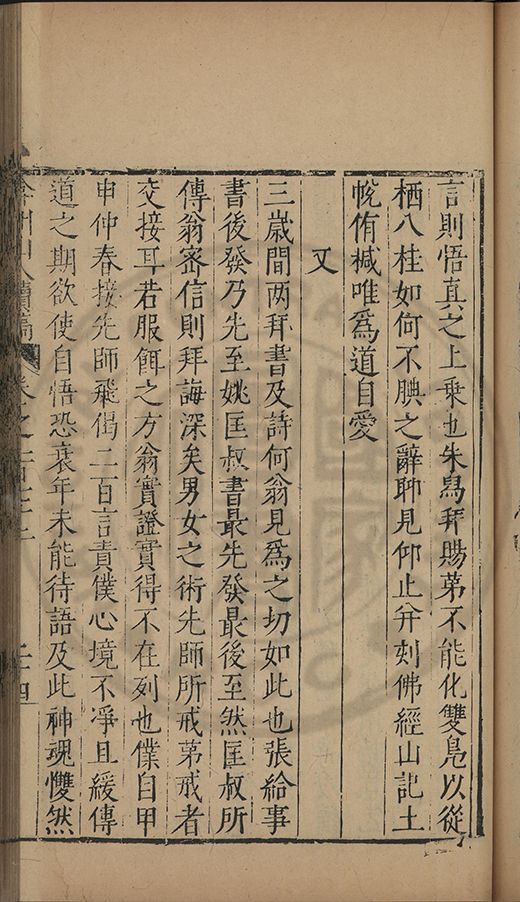 言則悟真之上乗也朱舄拜賜第不能化雙鳧以從
栖八桂如何不腆之辭聊見仰止并刻佛經山記土
帨侑椷唯爲道自愛
又
三歳間两拜書及詩何翁見爲之切如此也張給事
書後發乃先至姚匡叔書最先發最後至然匡叔所
傳翁宻信則拜誨深矣男女之術先師所戒第戒者
交接耳若服餌之方翁實證實得不在列也僕自甲
申仲春接先師飛偈二百言責僕心境不凈且緩傳
道之期欲使自悟恐衰年未能待語及此神魂雙然
山人續稿
卷之一百七十三
二十四